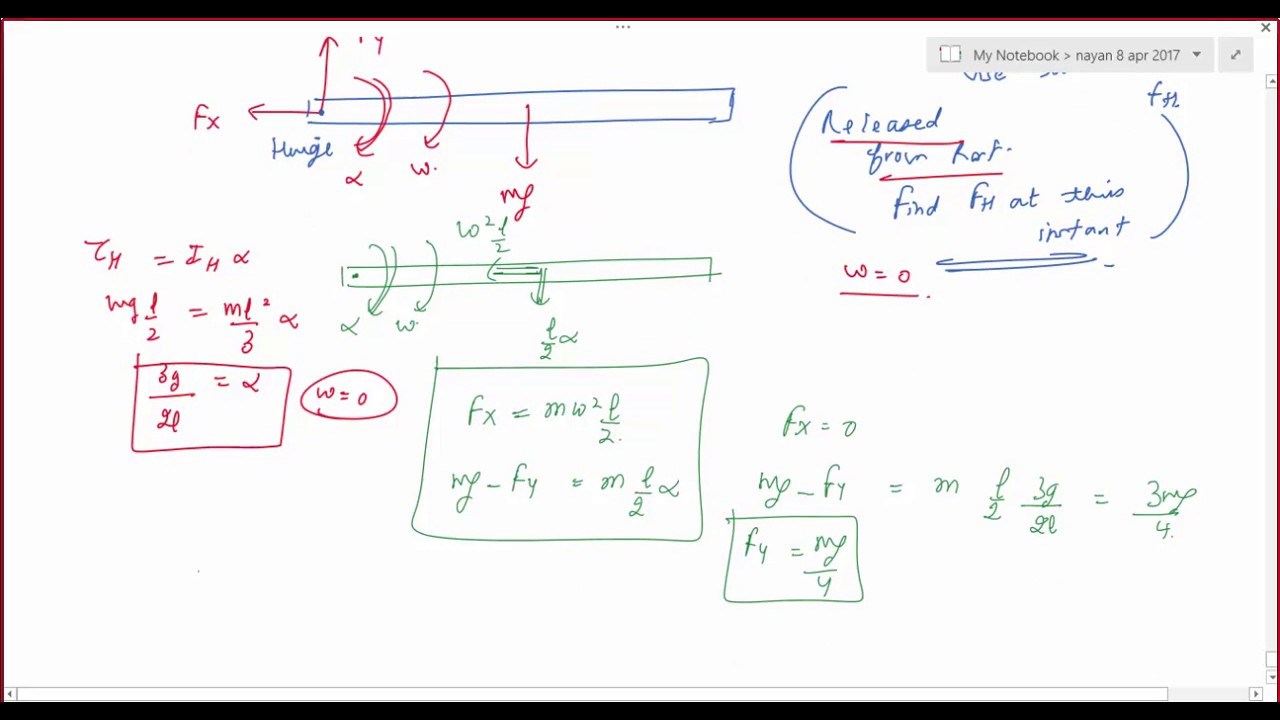 My Notebook > nayan 8 apr 2017
Fy
Fx
Hinge
α
ω.
mg
FH
Released
from hort.
find FH at this
instant
ω = 0
τH = IH α
mg l/2 = ml²/3 α
3g/2l = α
ω = 0
ω² l/2
α
ω.
l/2 α
Fx = mω² l/2.
mg - Fy = m l/2 α
Fx = 0
mg - Fy = m l/2 3g/2l = 3mg/4.
Fy = mg/4